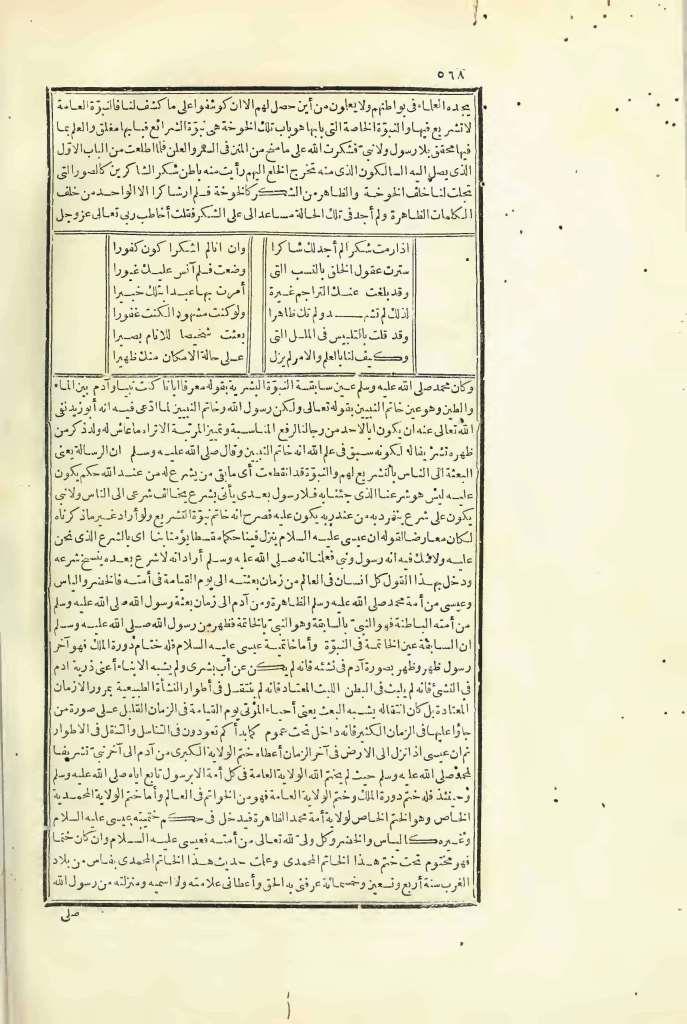 ٥٦٨
يجده العلماء فى بواطنهم ولا يعلمون من أين حصل لهم الا ان كوشفوا على ما كشف لنا فالنبوّة العامة
لا تشريع فيها والنبوّة الخاصة التى بابها هو باب تلك الخوخة هى نبوّة الشرائع فبابها مغلق والعلم بما
فيها محقق فلا رسول ولا نبىّ فشكرت الله على ما منح من المنن فى السرّ والعلن فلما اطلعت من الباب الاوّل
الذى يصل اليه السالكون الذى منه تخرج الخلع اليهم رأيت منه باطن شكر الشاكرين كالصور التى
تجلت لنا خلف الخوخة والظاهر من الشكر كالخوخة فلم ار شاكرا الا الواحد من خلف
الكلمات الظاهرة ولم أجد فى تلك الحالة مساعدا لى على الشكر فقلت أخاطب ربى تعالى عز وجل
اذا رمت شكرا لم أجد لك شاكرا وان انا لم اشكرا كون كفورا
سترت عقول الخلق بالنسب التى وضعت فلم آنس عليك غيورا
وقد بلغت عنك التراجم غيرة أمرت بها عبدا بتلك خبيرا
لذلك لم تشهد ولم تك ظاهرا ولو كنت مشهودا لكنت غفورا
وقد قلت بالتلبيس فى الملل التى بعثت شخيصا للانام بصيرا
وكيف لنا بالعلم والامر لم يزل على حالة الامكان منك ظهيرا
وكان محمد صلى الله عليه وسلم عين سابقة النبوّة البشرية بقوله معرفا ايانا كنت نبيا وآدم بين الماء
والطين وهو عين خاتم النبيين بقوله تعالى ولكن رسول الله وخاتم النبيين لما ادّعى فيه انه أبو زيد نفى
الله تعالى عنه ان يكون أبا لاحد من رجالنا لرفع المناسبة وتمييز المرتبة الا تراه ما عاش له ولد ذكر من
ظهره تشريفا له لكونه سبق فى علم الله انه خاتم النبيين وقال صلى الله عليه وسلم ان الرسالة يعنى
البعثة الى الناس بالتشريع لهم والنبوّة قد انقطعت أى ما بقى من يشرع له من عند الله حكم يكون
عليه ليس هو شرعنا الذى جئنا به فلا رسول بعدى يأتى بشرع يخالف شرعى الى الناس ولا نبى
يكون على شرع ينفرد به من عند ربه يكون عليه فصرح انه خاتم نبوّة التشريع ولو أراد غير ما ذكرناه
لكان معارضا لقوله ان عيسى عليه السلام ينزل فينا حكما مقسطا يؤمنا بنا أى بالشرع الذى نحن
عليه ولا شك فيه انه رسول ونبى فعلمنا انه صلى الله عليه وسلم أراد انه لا شرع بعده ينسخ شرعه
ودخل بهذا القول كل انسان فى العالم من زمان بعثته الى يوم القيامة فى أمته فالخضر والياس
وعيسى من أمة محمد صلى الله عليه وسلم الظاهرة ومن آدم الى زمان بعثة رسول الله صلى الله عليه وسلم
من أمته الباطنة فهو النبىّ بالسابقة وهو النبىّ بالخاتمة فظهر من رسول الله صلى الله عليه وسلم
ان السابقة عين الخاتمة فى النبوّة وأما خاتمية عيسى عليه السلام فله ختام دورة الملك فهو آخر
رسول ظهر وظهر بصورة آدم فى نشئه فانه لم يكن عن أب بشرى ولم يشبه الابناء أعنى ذرية ادم
فى النشئ فانه لم يلبث فى البطن اللبث المعتاد فانه لم ينتقل فى أطوار النشأة الطبيعية بمرور الازمان
المعتادة بل كان انتقاله يشبه البعث يعنى أحياء الموتى يوم القيامة فى الزمان القليل على صورة من
جاؤا عليها فى الزمان الكثير فانه داخل تحت عموم كما بدأكم تعودون فى التناسل والتنقل فى الاطوار
ثم ان عيسى اذا نزل الى الارض فى آخر الزمان أعطاه ختم الولاية الكبرى من آدم الى آخر نبىّ تشريفا
لمحمد صلى الله عليه وسلم حيث لم يختم الله الولاية العامة فى كل أمة الا برسول تابع اياه صلى الله عليه وسلم
وحينئذ فله ختم دورة الملك وختم الولاية العامة فهو من الخواتم فى العالم وأما ختم الولاية المحمدية
الخاص وهو الختم الخاص لولاية أمة محمد الظاهرة فيدخل فى حكم ختميته عيسى عليه السلام
وغيره كالياس والخضر وكل ولىّ لله تعالى من أمته فعيسى عليه السلام وان كان ختما
فهو مختوم تحت ختم هذا الخاتم المحمدى وعلمت حديث هذا الخاتم المحمدى بفاس من بلاد
الغرب سنة أربع وتسعين وخمسمائة عرفنى به الحق وأعطانى علامته ولا اسميه ومنزلته من رسول الله
صلى